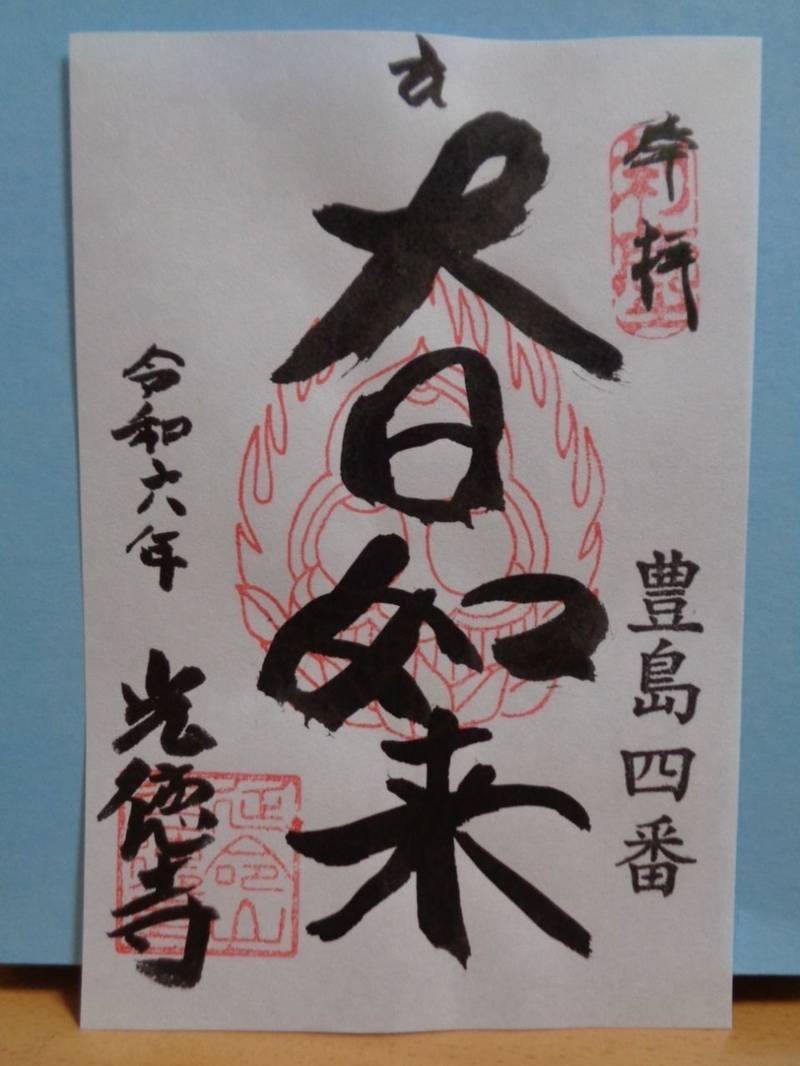 奉拝
豊島四番
大日如来
令和六年
光徳寺